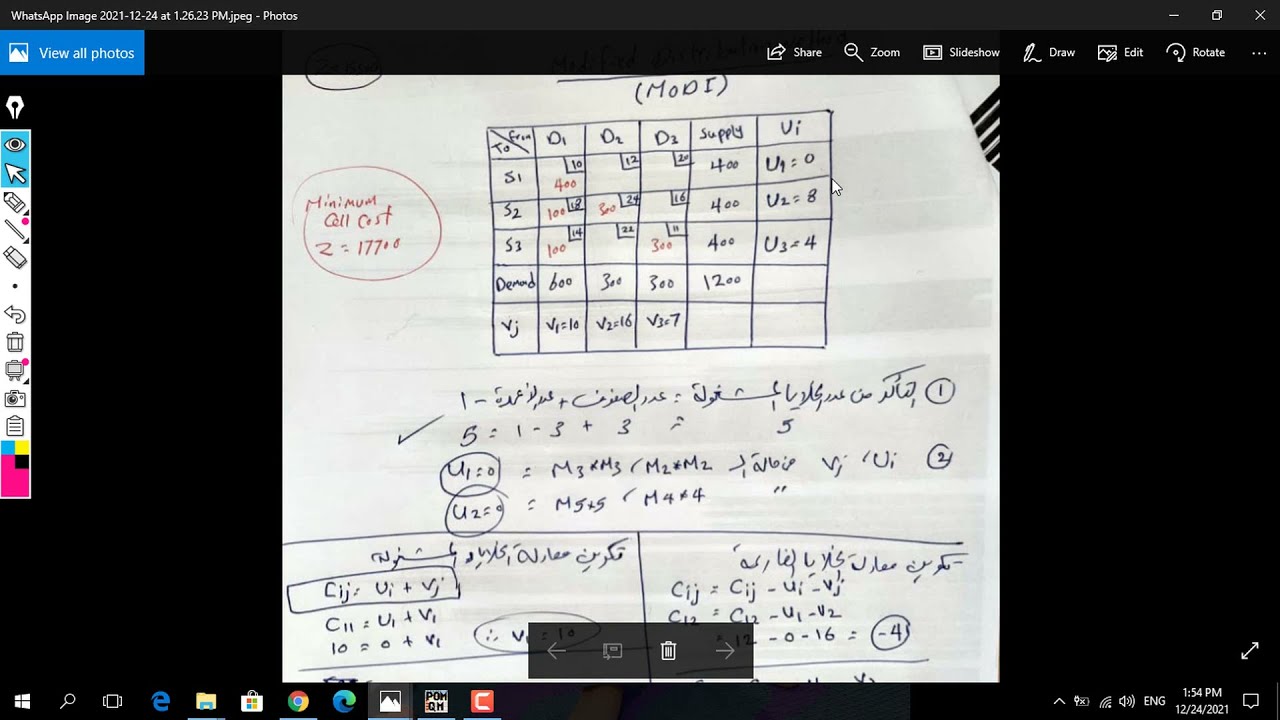 WhatsApp Image 2021-12-24 at 1.26.23 PM.jpeg - Photos
View all photos
Share Zoom Slideshow Draw Edit Rotate
(MODI)
From To D1 D2 D3 Supply Ui
S1 10 400 12 20 400 U1=0
S2 18 100 24 300 16 400 U2=8
S3 14 100 22 11 300 400 U3=4
Demand 600 300 300 1200
Vj V1=10 V2=16 V3=7
Minimum
Cell Cost
Z = 17700
① التأكد من عدد الخلايا المشغولة = عدد الصفوف + عدد الأعمدة - 1
5 = 3 + 3 - 1 = 5
② Ui، Vj من حالة M2*M2، M3*M3 = U1=0
" M4*4، M5*5 = U2=0
تكوين معادلة الخلايا المشغولة
Cij = Ui + Vj
C11 = U1 + V1
10 = 0 + V1 ∴ V1 = 10
تكوين معادلة الخلايا الفارغة
Cij = Cij - Ui - Vj
C12 = C12 - U1 - V2
= 12 - 0 - 16 = -4
POM QM
ENG
1:54 PM
12/24/2021